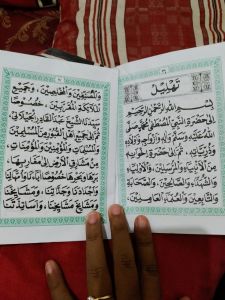 تَهْلِيْل
بِسْمِ اللهِ الرَّحْمٰنِ الرَّحِيْمِ
اِلَى حَضْرَةِ النَّبِيِّ الْمُصْطَفَى مُحَمَّدٍ صَلَّى
اللهُ عَلَيْهِ وَسَلَّمَ وَاٰلِهِ وَاَزْوَاجِهِ وَاَوْلَادِهِ
وَذُرِّيَّاتِهِ، ثُمَّ اِلَى حَضْرَةِ اِخْوَانِهِ
مِنَ الْاَنْبِيَاءِ وَالْمُرْسَلِيْنَ، وَالْاَوْلِيَاءِ
وَالشُّهَدَاءِ وَالصَّالِحِيْنَ، وَالصَّحَابَةِ
وَالتَّابِعِيْنَ وَالْعُلَمَاءِ الْعَامِلِيْنَ،
وَالْمُصَنِّفِيْنَ وَالْمُخْلِصِيْنَ، وَجَمِيْعِ
الْمَلَائِكَةِ الْمُقَرَّبِيْنَ، خُصُوْصًا
سَيِّدِنَا الشَّيْخِ عَبْدِ الْقَادِرِ الْجَيْلَانِيِّ
ثُمَّ اِلَى جَمِيْعِ اَهْلِ الْقُبُوْرِ مِنَ الْمُسْلِمِيْنَ
وَالْمُسْلِمَاتِ وَالْمُؤْمِنِيْنَ وَالْمُؤْمِنَاتِ
مِنْ مَشَارِقِ الْاَرْضِ اِلَى مَغَارِبِهَا
بَرِّهَا وَبَحْرِهَا خُصُوْصًا اٰبَاءَنَا وَاُمَّهَاتِنَا
وَاَجْدَادَنَا وَجَدَّاتِنَا وَمَشَايِخَنَا
وَمَشَايِخَ مَشَايِخِنَا، وَاَسَاتِذَتَنَا